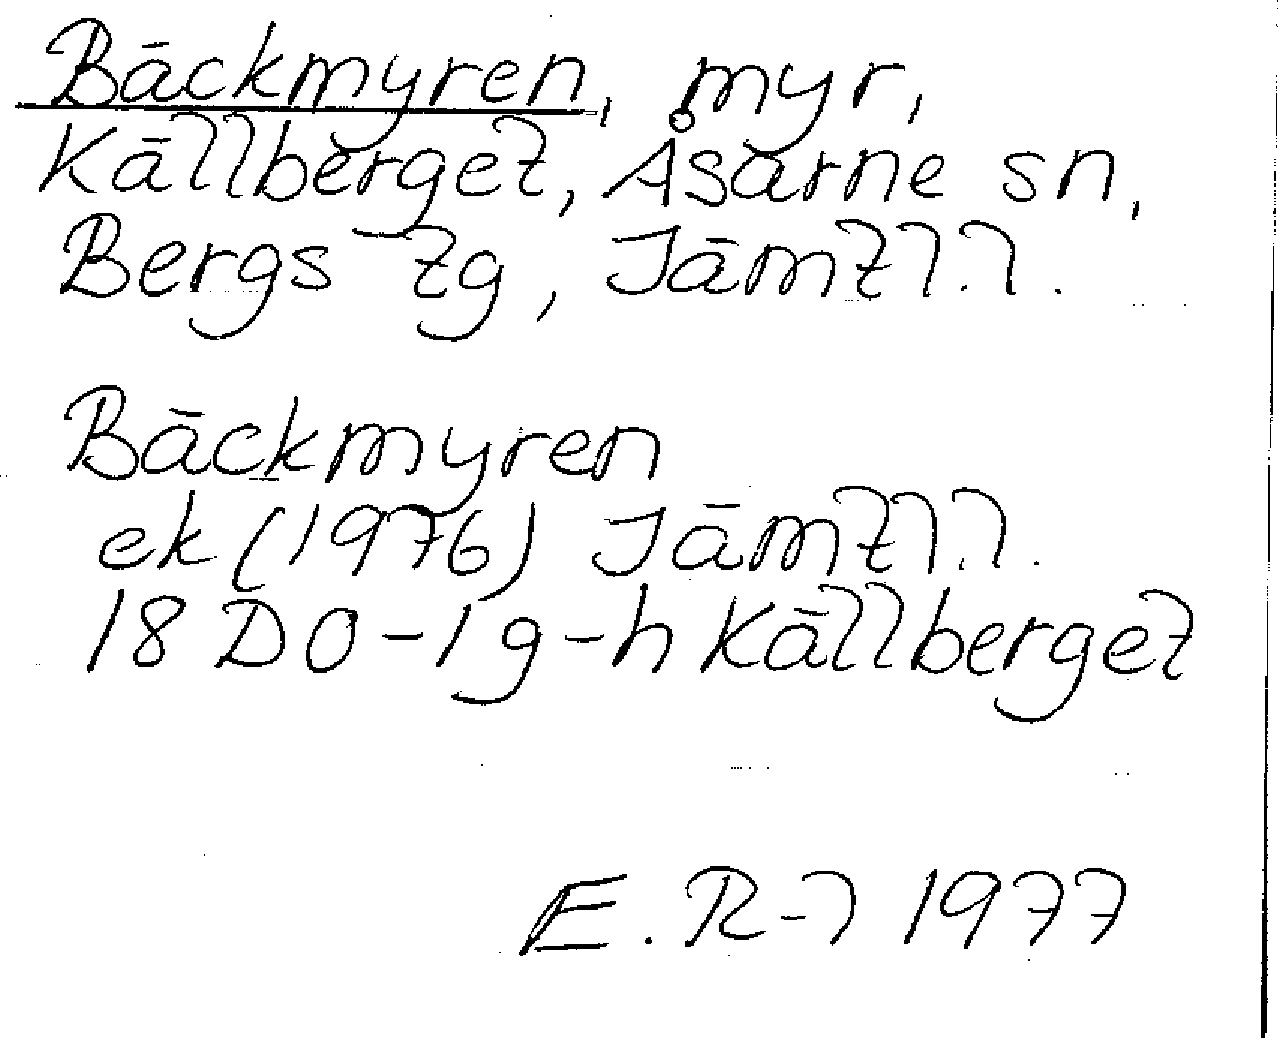 Bäckmyren, myr,
Källberget, Åsarne sn,
Bergs tg, Jämtl.l.
Bäckmyren
ek (1976) Jämtl.l.
18 D 0-1 g-h Källberget
E. R-l 1977